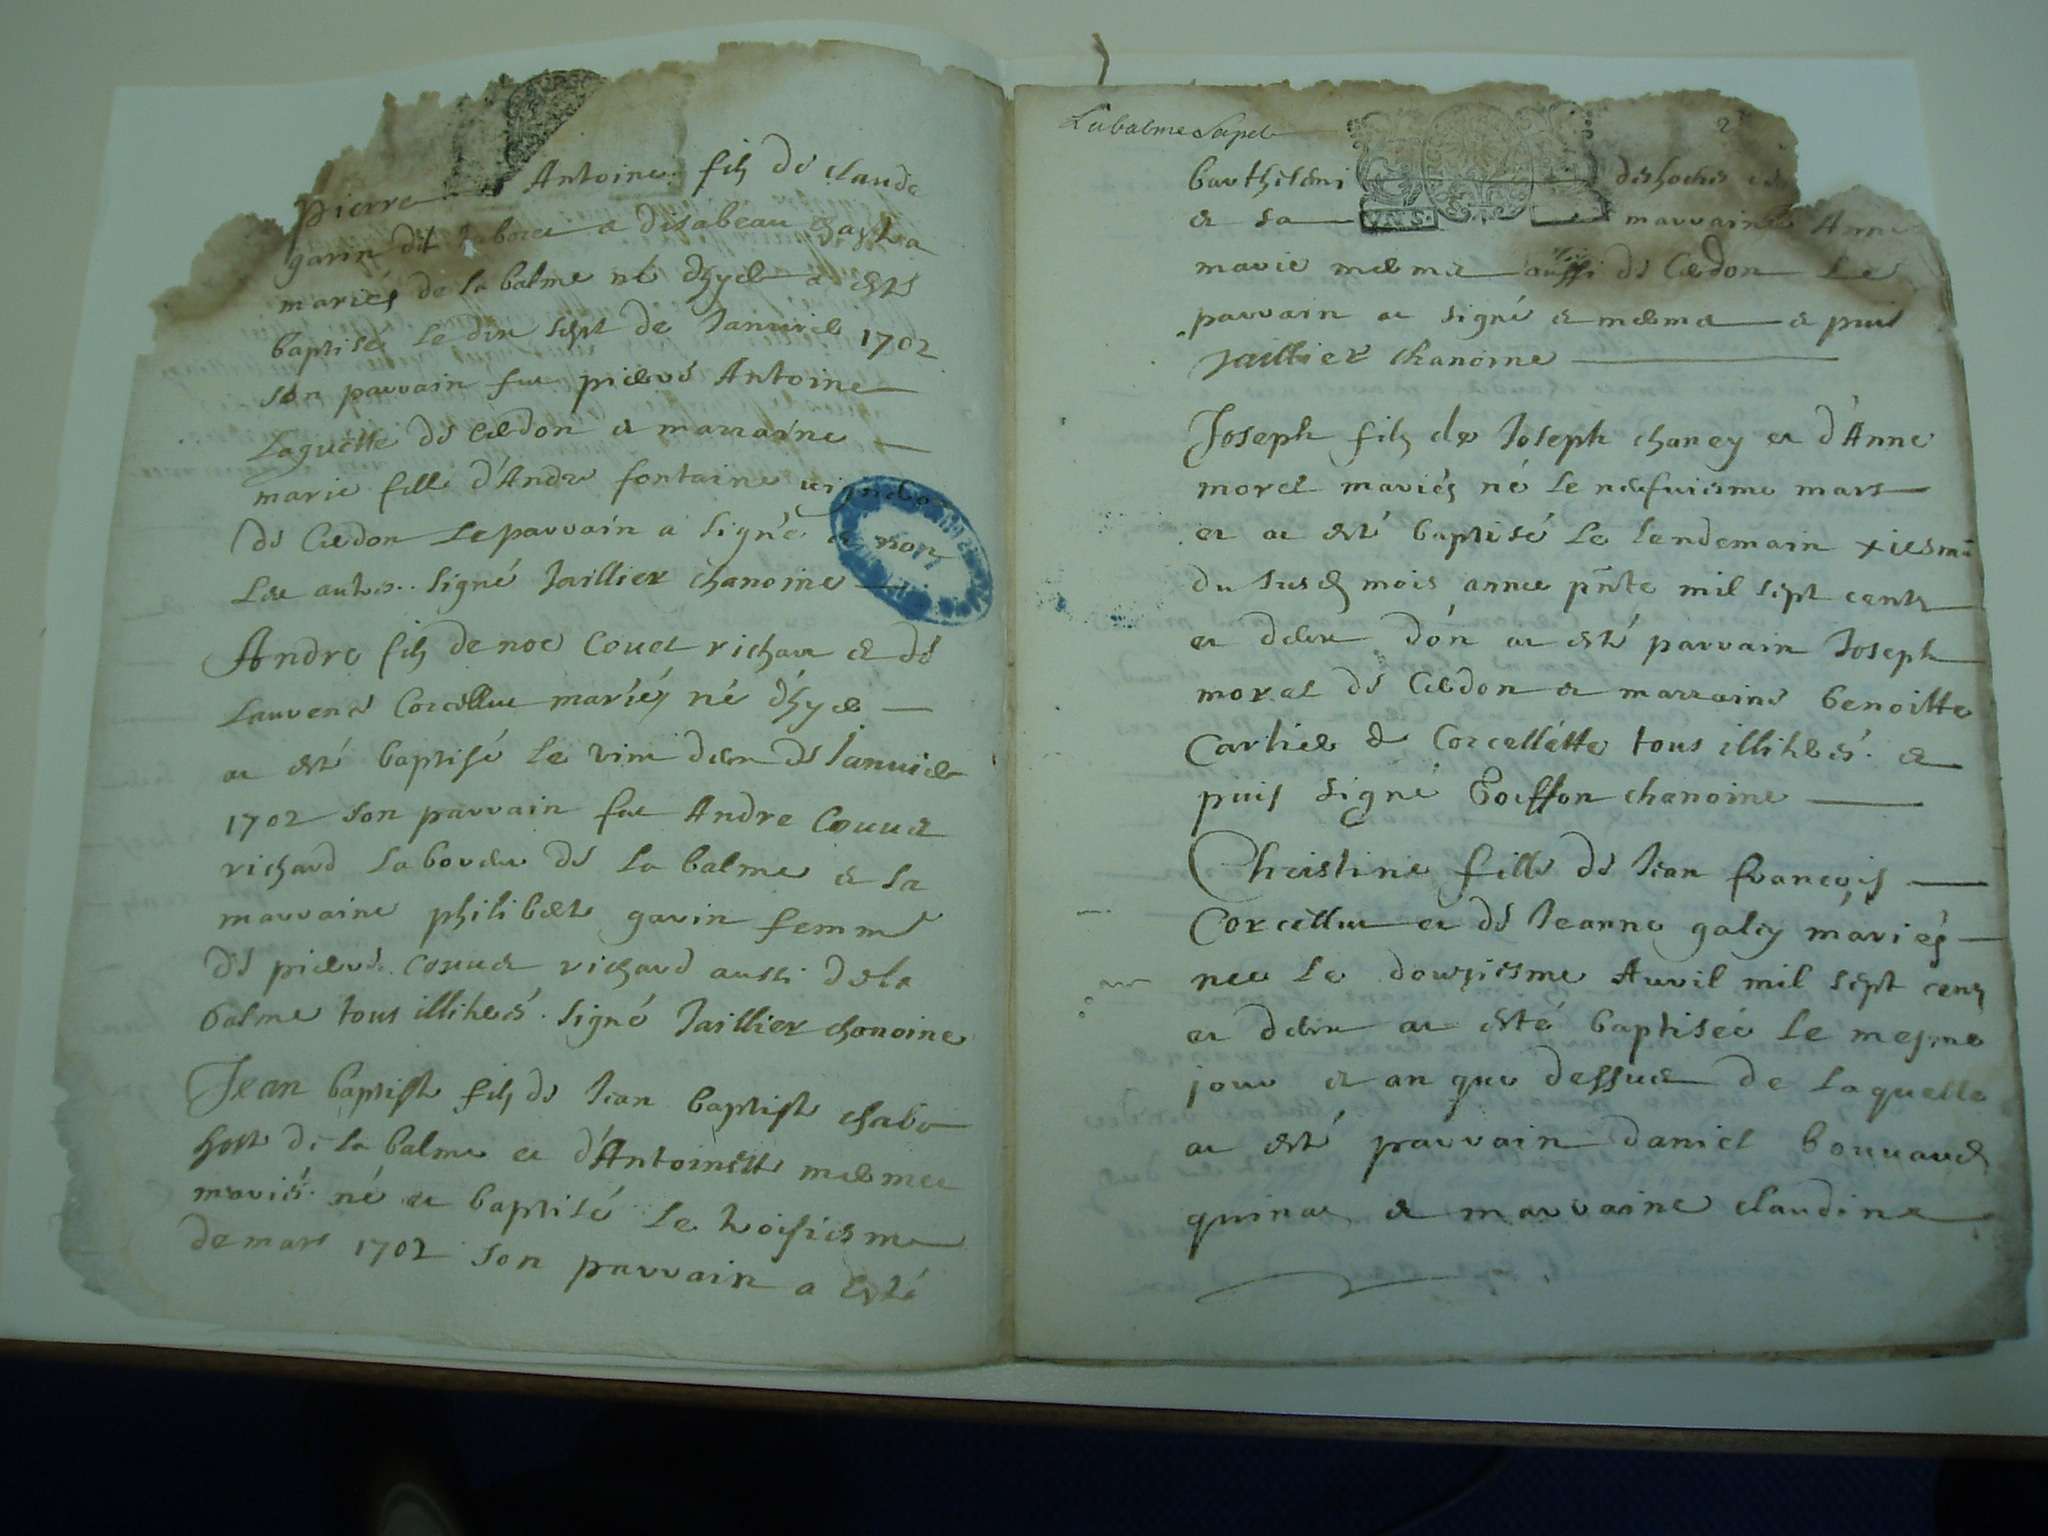 Pierre Antoine fils de claude
garin dit a disabeau
mariés de la balme né dhyer a esté
baptisé le dix sept de Januier 1702
son parrain fut pierre Antoine
Laguette de Cerdon et marraine
marie fille d'Andre fontaine vigneron
de Cerdon Le parrain a signé et non
Les autres. signé Jaillier chanoine
Andre fils de noe Couet richar et de
Laurence Corcellut mariés né dhyer
at esté baptisé le vint deux de Januier
1702 son parrain fut André Couuet
richard laboureur de la balme et la
marraine philiberte garin femme
de pierre couuet richard aussi de la
balme tous illiterés. signé Jaillier chanoine
Jean baptiste fils de Jean baptiste
de la balme et d'Antoinette mermet
mariés né et baptisé le troisiesme
de mars 1702 son parrain a esté
Labalme Sapel
2
barthelemi deshoches
et sa marraine Anne
marie mermet aussi de Cerdon Le
parrain at signé et puis
Jaillier chanoine
Joseph fils de Joseph chaney et d'Anne
morel mariés né le neufuiesme mars
et at esté baptisé le lendemain xiesme
du susd mois annee pnte mil sept cents
et deux don at esté parrain Joseph
morel de Cerdon et marraine benoitte
Cartier de Corcellette tous illiterés. et
puis signé Goiffon chanoine
Christine fille de Jean françois
Corcellut et de Jeanne galey mariés
nee le douziesme Auvril mil sept cens
et deux at esté baptisée le mesme
jour et an que dessus de laquelle
at esté parrain daniel bouuard
quinat et marraine claudine